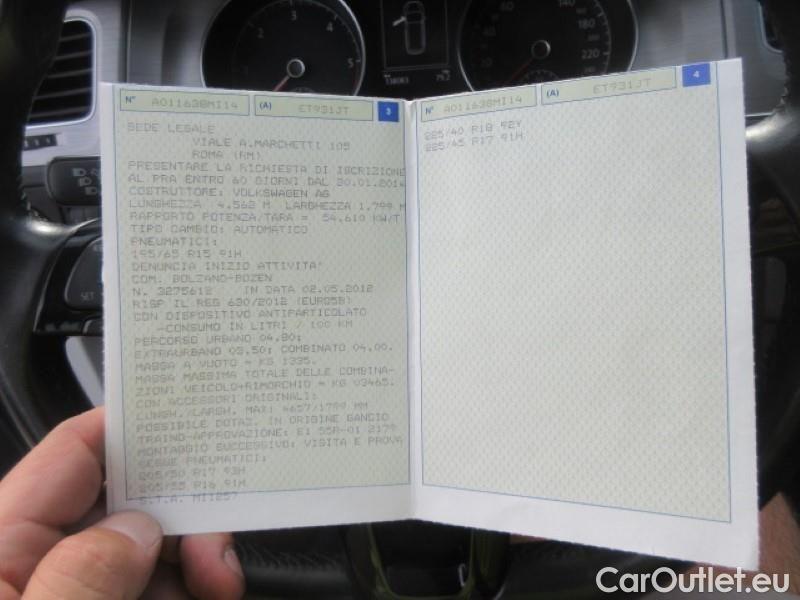 60
120
140
180
220
5
138083
79.2
SET
N° A011638MI14 (A) ET931JT 3
SEDE LEGALE
VIALE A.MARCHETTI 105
ROMA (RM)
PRESENTARE LA RICHIESTA DI ISCRIZIONE
AL PRA ENTRO 60 GIORNI DAL 30.01.2014
COSTRUTTORE: VOLKSWAGEN AG
LUNGHEZZA 4.562 M LARGHEZZA 1.799 M
RAPPORTO POTENZA/TARA = 54.610 KW/T
TIPO CAMBIO: AUTOMATICO
PNEUMATICI:
195/65 R15 91H
DENUNCIA INIZIO ATTIVITA'
COM. BOLZANO-BOZEN
N. 3275612 IN DATA 02.05.2012
RISP IL REG 630/2012 (EURO5B)
CON DISPOSITIVO ANTIPARTICOLATO
-CONSUMO IN LITRI / 100 KM
PERCORSO URBANO 04.80;
EXTRAURBANO 03.50; COMBINATO 04.00.
MASSA A VUOTO = KG 1335.
MASSA MASSIMA TOTALE DELLE COMBINA-
ZIONI VEICOLO+RIMORCHIO = KG 03465.
CON ACCESSORI ORIGINALI:
LUNGH./LARGH. MAX: 4657/1799 MM
POSSIBILE DOTAZ. IN ORIGINE GANCIO
TRAINO-APPROVAZIONE: E1 55R-01 2179
MONTAGGIO SUCCESSIVO: VISITA E PROVA
SEGUE PNEUMATICI:
205/50 R17 93H
205/55 R16 91H
S.T.A. MI1257
N° A011638MI14 (A) ET931JT 4
225/40 R18 92Y
225/45 R17 91H
CarOutlet.eu